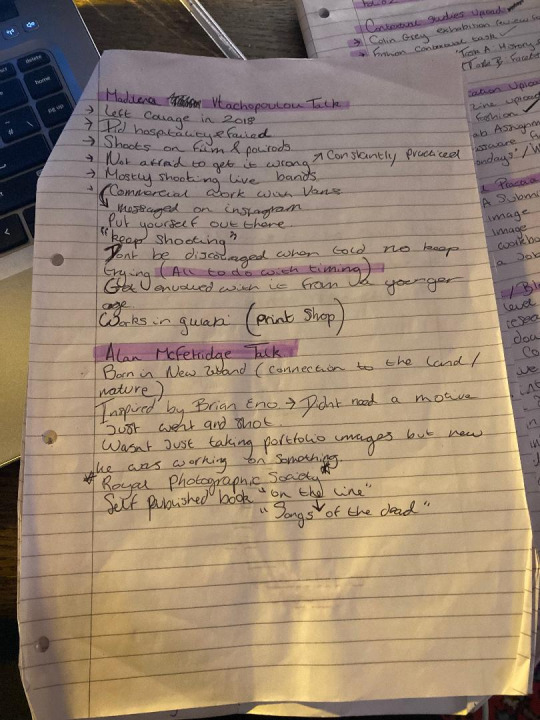 Madlena Vlachopoulou Talk
→ Left college in 2018
→ Did hospitality & failed
→ Shoots on film & polaroids
→ Not afraid to get it wrong → Constantly practiced
→ Mostly shooting live bands
→ Commercial work with Vans
↳ messaged on instagram
Put yourself out there
"keep shooting"
Dont be discouraged when told no keep
trying (All to do with timing)
Get envolved with it from a younger
age
Works in (print shop)
Alan McFetridge Talk
Born in New Zealand (connection to the land/
nature)
Inspired by Brian Eno → Didnt need a motive
Just went and shot.
Wasnt Just taking portfolio images but new
he was working on something
* Royal Photographic Society *
Self published book "on the line"
"Songs of the dead"
Contextual studies Upload
→ Colin Grey exhibition review
→ Fashion contextual task
delete
home
pg up